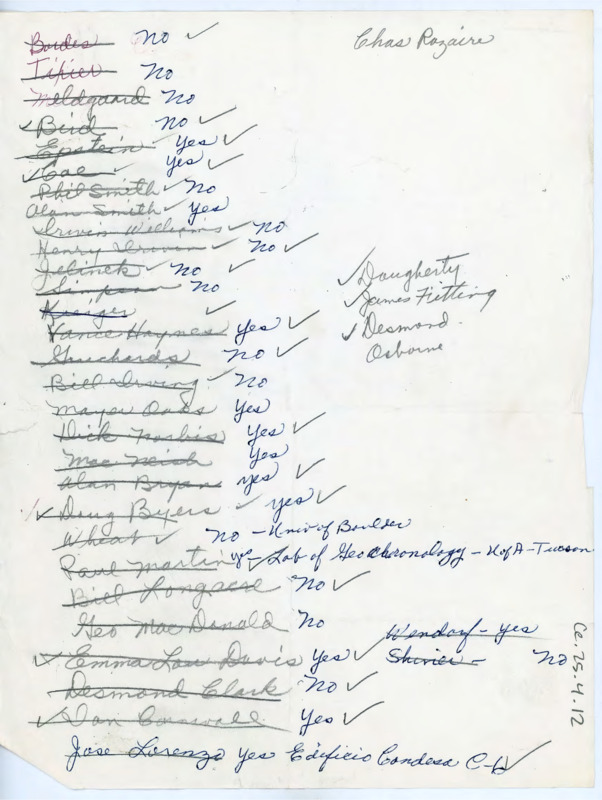 Bordes No ✓
Chas Rozaire
Tixier No
Meldgaard No
✓ Bird No ✓
Epstein Yes ✓
✓ Coe ✓ Yes ✓
Phil Smith ✓ No
Alan Smith ✓ Yes
Irwin Williams ✓ No
Henry Irwin ✓ No ✓
Jelinek ✓ No ✓
Simpson No
✓ Daugherty
✓ James Fitting
Kreiger ✓
Vance Haynes Yes ✓
✓ Desmond
Osborne
No ✓
Bill Irving ✓ No
Mayer Oaks Yes
Dick Yes ✓
Mac Neish Yes
Alan Bryan yes ✓
✓ Doug Byers ✓ yes ✓
Wheat ✓ No - Univ of Boulder
Paul Martin yes - Lab of Geochronology - U of A - Tucson
Bill No ✓
Geo Mac Donald No
Wendorf - yes
✓ Emma Lou Davis Yes ✓
Shiner - No
Desmond Clark No ✓
✓ Yes ✓
Jose Lorenzo yes Edificio Condesa ✓
Ce.25.4.12